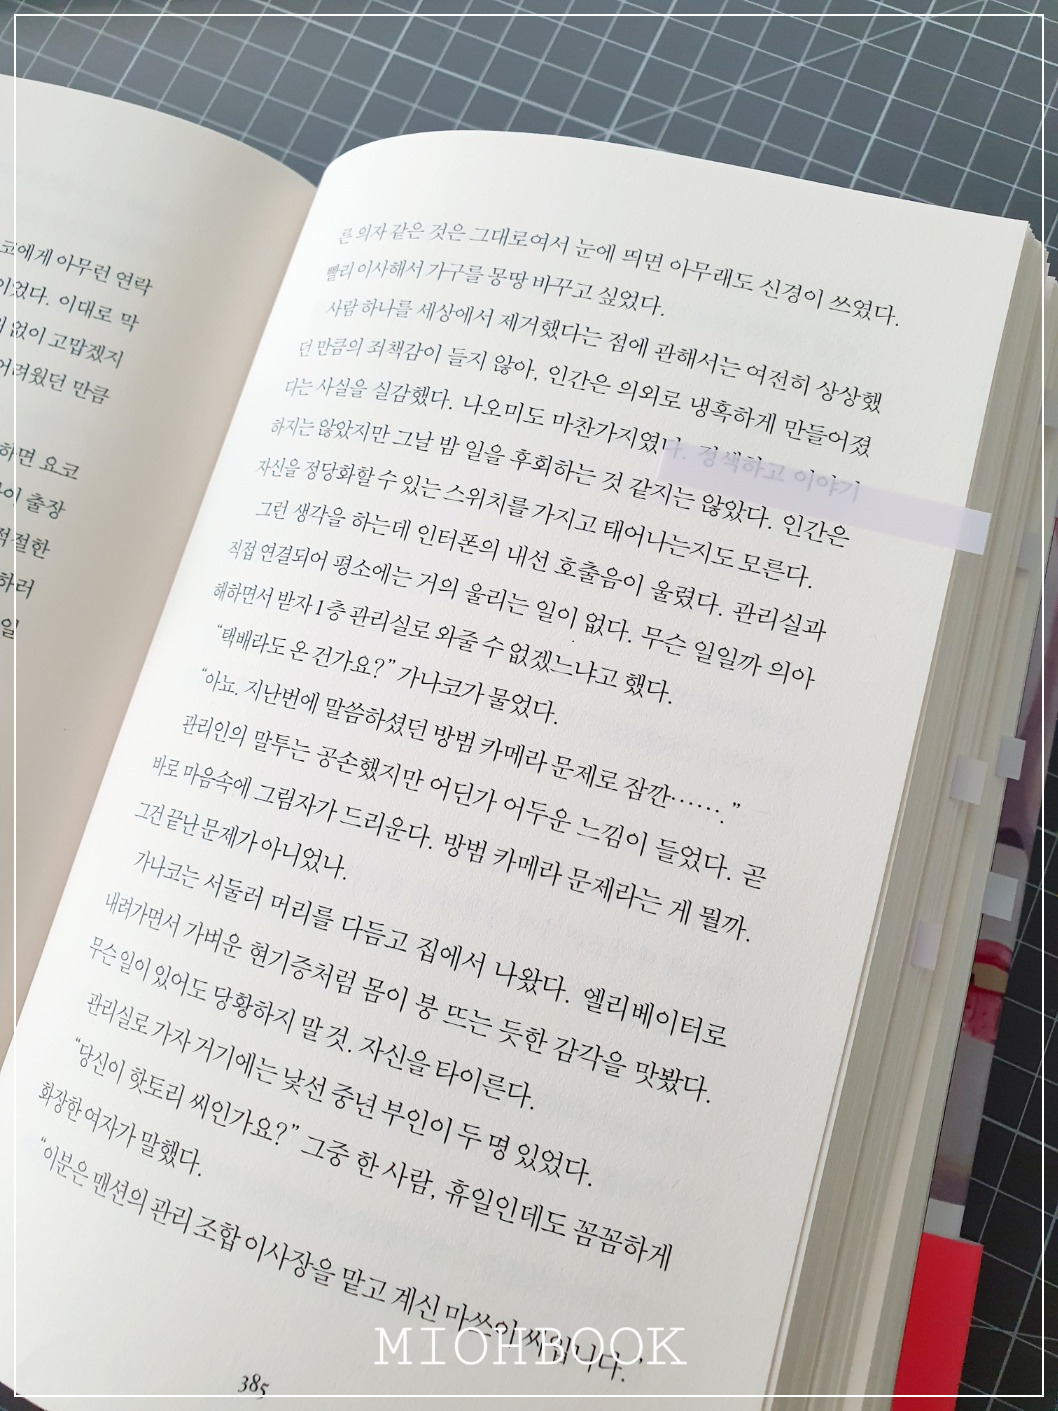 코에게 아무런 연락
이었다. 이대로 막
없이 고맙겠지
어려웠던 만큼
하면 요코
이 출장
적절한
하러
일
른 의자 같은 것은 그대로여서 눈에 띄면 아무래도 신경이 쓰였다.
빨리 이사해서 가구를 몽땅 바꾸고 싶었다.
사람 하나를 세상에서 제거했다는 점에 관해서는 여전히 상상했
던 만큼의 죄책감이 들지 않아, 인간은 의외로 냉혹하게 만들어졌
다는 사실을 실감했다. 나오미도 마찬가지였다. 정색하고 이야기
하지는 않았지만 그날 밤 일을 후회하는 것 같지는 않았다. 인간은
자신을 정당화할 수 있는 스위치를 가지고 태어나는지도 모른다.
그런 생각을 하는데 인터폰의 내선 호출음이 울렸다. 관리실과
직접 연결되어 평소에는 거의 울리는 일이 없다. 무슨 일일까 의아
해하면서 받자 1층 관리실로 와줄 수 없겠느냐고 했다.
“택배라도 온 건가요?” 가나코가 물었다.
“아뇨. 지난번에 말씀하셨던 방범 카메라 문제로 잠깐…….”
관리인의 말투는 공손했지만 어딘가 어두운 느낌이 들었다. 곧
바로 마음속에 그림자가 드리운다. 방범 카메라 문제라는 게 뭘까.
그건 끝난 문제가 아니었나.
가나코는 서둘러 머리를 다듬고 집에서 나왔다. 엘리베이터로
내려가면서 가벼운 현기증처럼 몸이 붕 뜨는 듯한 감각을 맛봤다.
무슨 일이 있어도 당황하지 말 것. 자신을 타이른다.
관리실로 가자 거기에는 낯선 중년 부인이 두 명 있었다.
“당신이 핫토리 씨인가요?” 그중 한 사람, 휴일인데도 꼼꼼하게
화장한 여자가 말했다.
“이분은 맨션의 관리 조합 이사장을 맡고 계신 마쓰이 씨입니다.”
MIOHBOOK
385